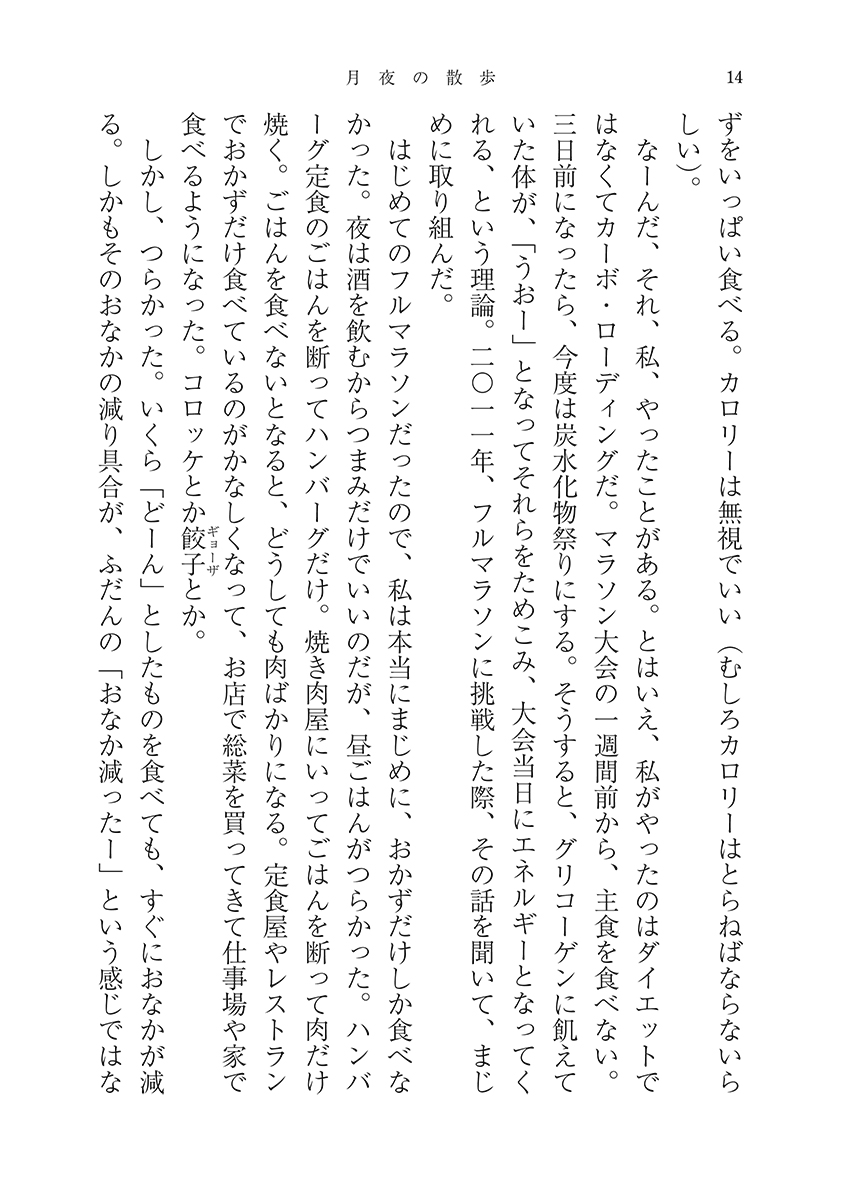 月夜の散歩
14
ずをいっぱい食べる。カロリーは無視でいい（むしろカロリーはとらねばならないら
しい）。
なーんだ、それ、私、やったことがある。とはいえ、私がやったのはダイエットで
はなくてカーボ・ローディングだ。マラソン大会の一週間前から、主食を食べない。
三日前になったら、今度は炭水化物祭りにする。そうすると、グリコーゲンに飢えて
いた体が、「うおー」となってそれらをためこみ、大会当日にエネルギーとなってく
れる、という理論。二〇一一年、フルマラソンに挑戦した際、その話を聞いて、まじ
めに取り組んだ。
はじめてのフルマラソンだったので、私は本当にまじめに、おかずだけしか食べな
かった。夜は酒を飲むからつまみだけでいいのだが、昼ごはんがつらかった。ハンバ
ーグ定食のごはんを断ってハンバーグだけ。焼き肉屋にいってごはんを断って肉だけ
焼く。ごはんを食べないとなると、どうしても肉ばかりになる。定食屋やレストラン
でおかずだけ食べているのがかなしくなって、お店で総菜を買ってきて仕事場や家で
食べるようになった。コロッケとか餃子とか。
ギョーザ
しかし、つらかった。いくら「どーん」としたものを食べても、すぐにおなかが減
る。しかもそのおなかの減り具合が、ふだんの「おなか減ったー」という感じではな